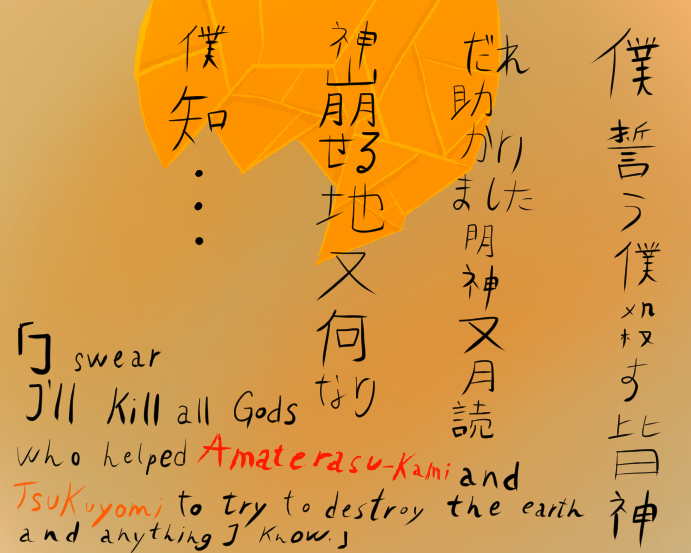 僕誓う僕殺す皆神
だれ助かりました明神又月読
神崩せる地又何なり
僕知・・・
「I swear
I'll Kill all Gods
who helped Amaterasu-Kami and
Tsukuyomi to try to destroy the earth
and anything I know.」